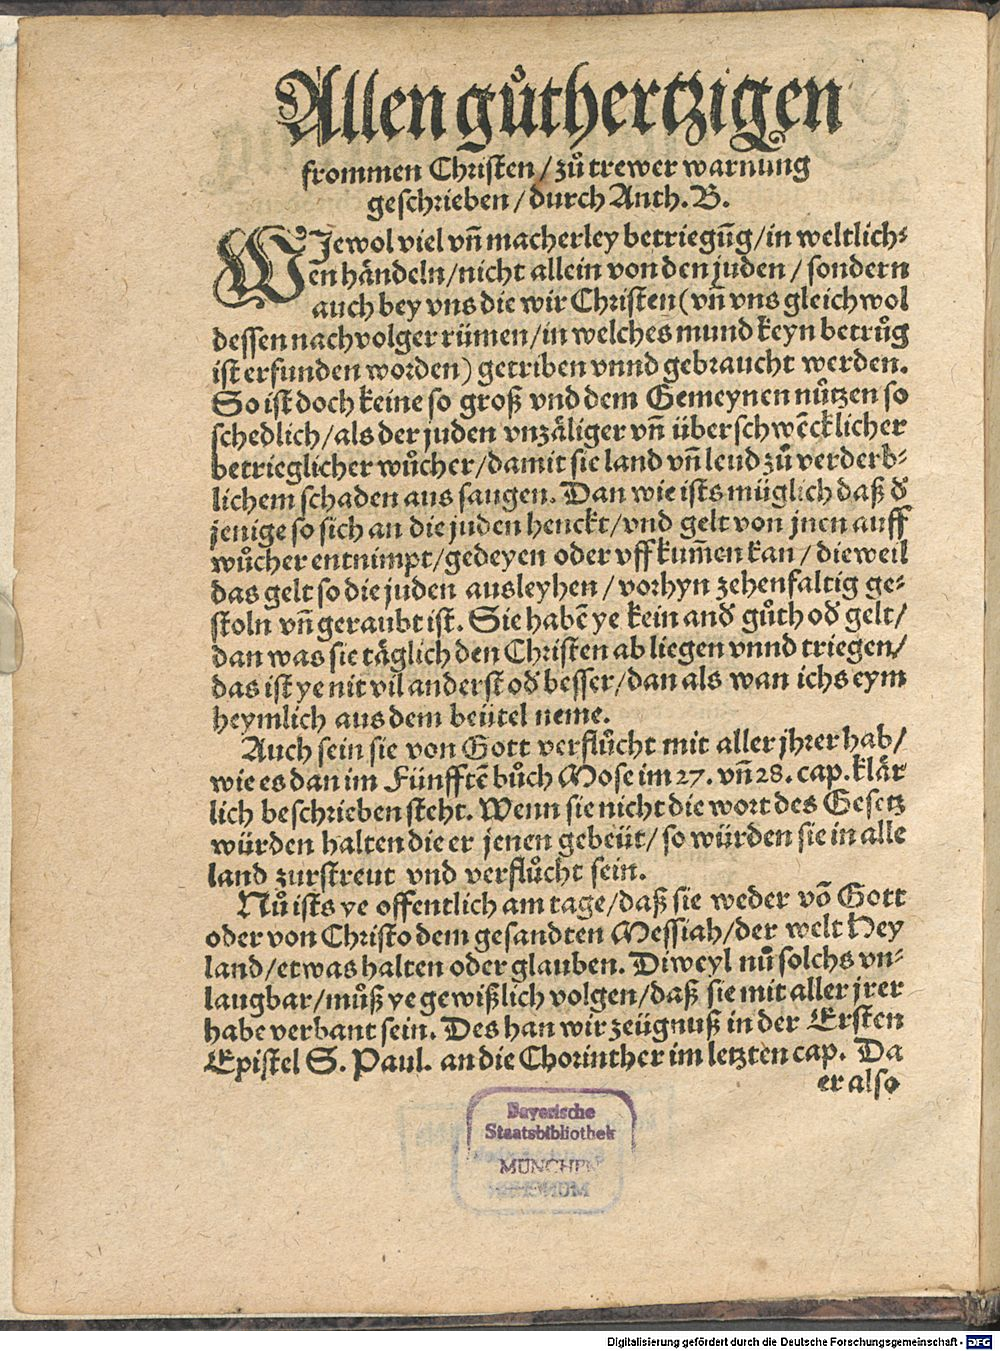 Allen gůthertzigen
frommen Christen / zů trewer warnung
geschrieben / durch Anth. B.
WJewol viel vñ macherley betriegũg / in weltlich⸗
en händeln / nicht allein von den juden / sondern
auch bey vns die wir Christen (vñ vns gleichwol
dessen nachvolger rümen / in welches mund keyn betrůg
ist erfunden worden) getriben vnnd gebraucht werden.
So ist doch keine so groß vnd dem Gemeynen nůtzen so
schedlich / als der juden vnzäliger vñ überschwẽcklicher
betrieglicher wůcher / damit sie land vñ leud zů verderb⸗
lichem schaden aus saugen. Dan wie ists müglich daß d᷑
jenige so sich an die juden henckt / vnd gelt von jnen auff
wůcher entnimpt / gedeyen oder vffkum̃en kan / dieweil
das gelt so die juden ausleyhen / vorhyn zehenfaltig ge⸗
stoln vñ geraubt ist. Sie habẽ ye kein and᷑ gůth od᷑ gelt /
dan was sie täglich den Christen ab liegen vnnd triegen /
das ist ye nit vil anderst od᷑ besser / dan als wan ichs eym
heymlich aus dem beütel neme.
Auch sein sie von Gott verflůcht mit aller jhrer hab /
wie es dan im Fünfftẽ bůch Mose im 27. vñ 28. cap. klär
lich beschrieben steht. Wenn sie nicht die wort des Gesetz
würden halten die er jenen gebeüt / so würden sie in alle
land zurstreut vnd verflůcht sein.
Nů ists ye offentlich am tage / daß sie weder võ Gott
oder von Christo dem gesandten Messiah / der welt Hey
land / etwas halten oder glauben. Diweyl nů solchs vn⸗
laugbar / můß ye gewißlich volgen / daß sie mit aller jrer
habe verbant sein. Des han wir zeügnuß in der Ersten
Epistel S. Paul. an die Chorinther im letzten cap. Da
er also
Bayerische
Staatsbibliothek
MÜNCHEN
Digitalisierung gefördert durch die Deutsche Forschungsgemeinschaft - DFG